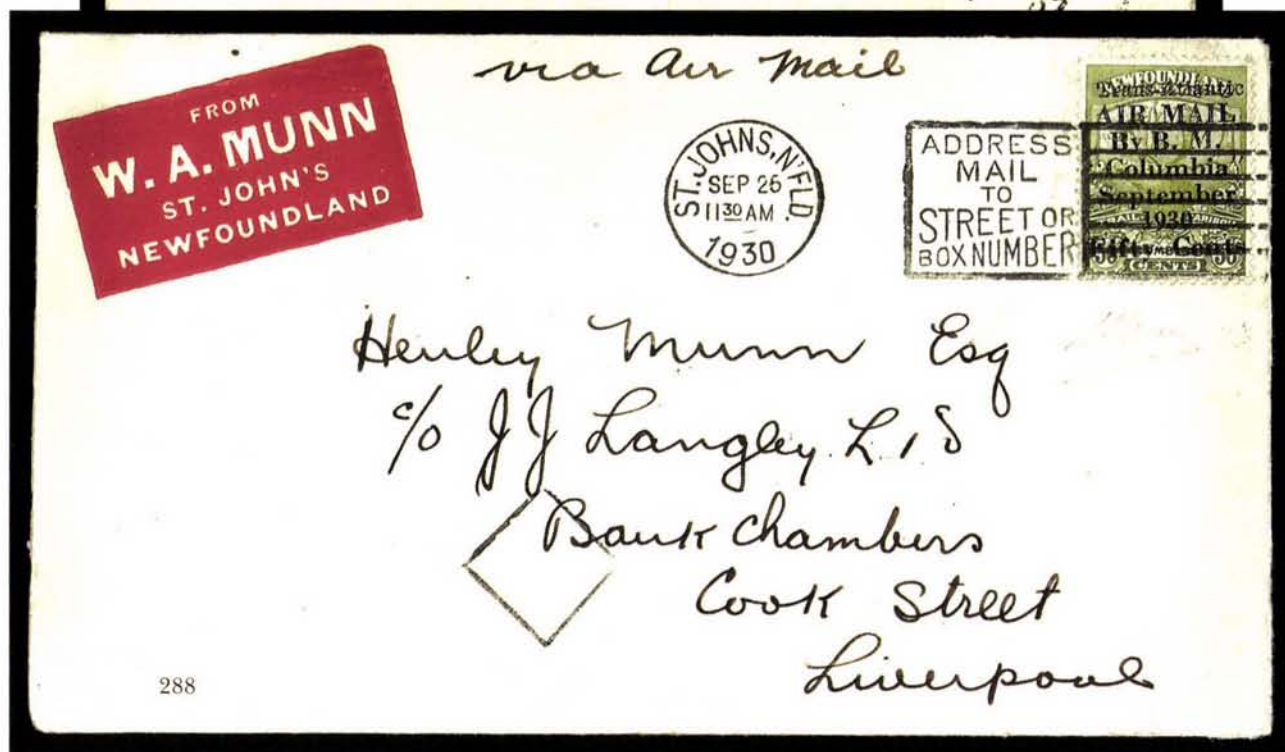 via Air Mail
FROM
W. A. MUNN
ST. JOHN'S
NEWFOUNDLAND
ST. JOHNS, N'FLD.
SEP 26
11 30 AM
1930
ADDRESS
MAIL
TO
STREET OR
BOX NUMBER
NEWFOUNDLAND
Trans-Atlantic
AIR MAIL
By B. M.
Columbia
September
1930
Fifty Cents
CENTS
Henley Munn Esq
c/o J J Langley L, S
Bank Chambers
Cook Street
Liverpool
288